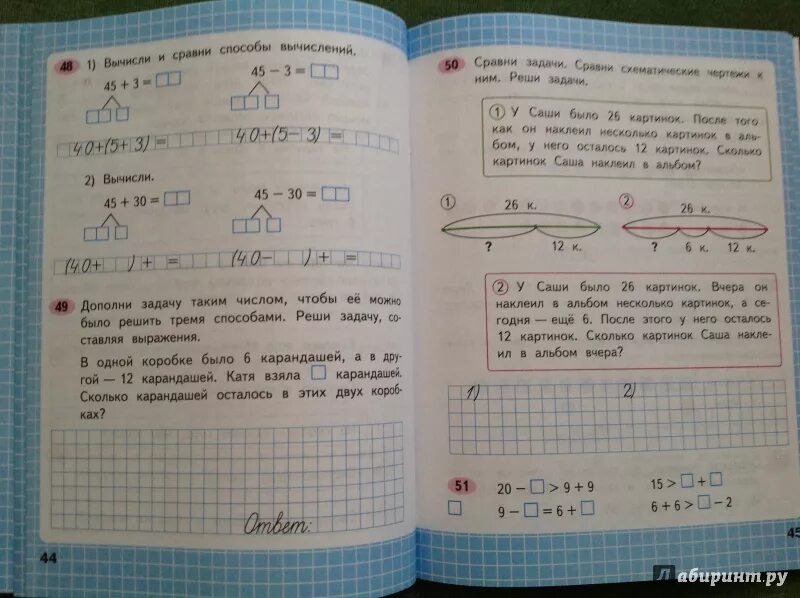 48 1) Вычисли и сравни способы вычислений.
45 + 3 = 45 − 3 =
40+(5+3) = 40+(5−3) =
2) Вычисли.
45 + 30 = 45 − 30 =
(40+ ) + = (40− ) + =
49 Дополни задачу таким числом, чтобы её можно
было решить тремя способами. Реши задачу, со-
ставляя выражения.
В одной коробке было 6 карандашей, а в дру-
гой — 12 карандашей. Катя взяла □ карандашей.
Сколько карандашей осталось в этих двух короб-
ках?
Ответ:
44
50 Сравни задачи. Сравни схематические чертежи к
ним. Реши задачи.
1 У Саши было 26 картинок. После того
как он наклеил несколько картинок в аль-
бом, у него осталось 12 картинок. Сколько
картинок Саша наклеил в альбом?
1 26 к. 2 26 к.
? 12 к. ? 6 к. 12 к.
2 У Саши было 26 картинок. Вчера он
наклеил в альбом несколько картинок, а се-
годня — ещё 6. После этого у него осталось
12 картинок. Сколько картинок Саша накле-
ил в альбом вчера?
1) 2)
51 20 − □ > 9 + 9 15 > □ + □
9 − □ = 6 + □ 6 + 6 > □ − 2
45
Лабиринт.ру